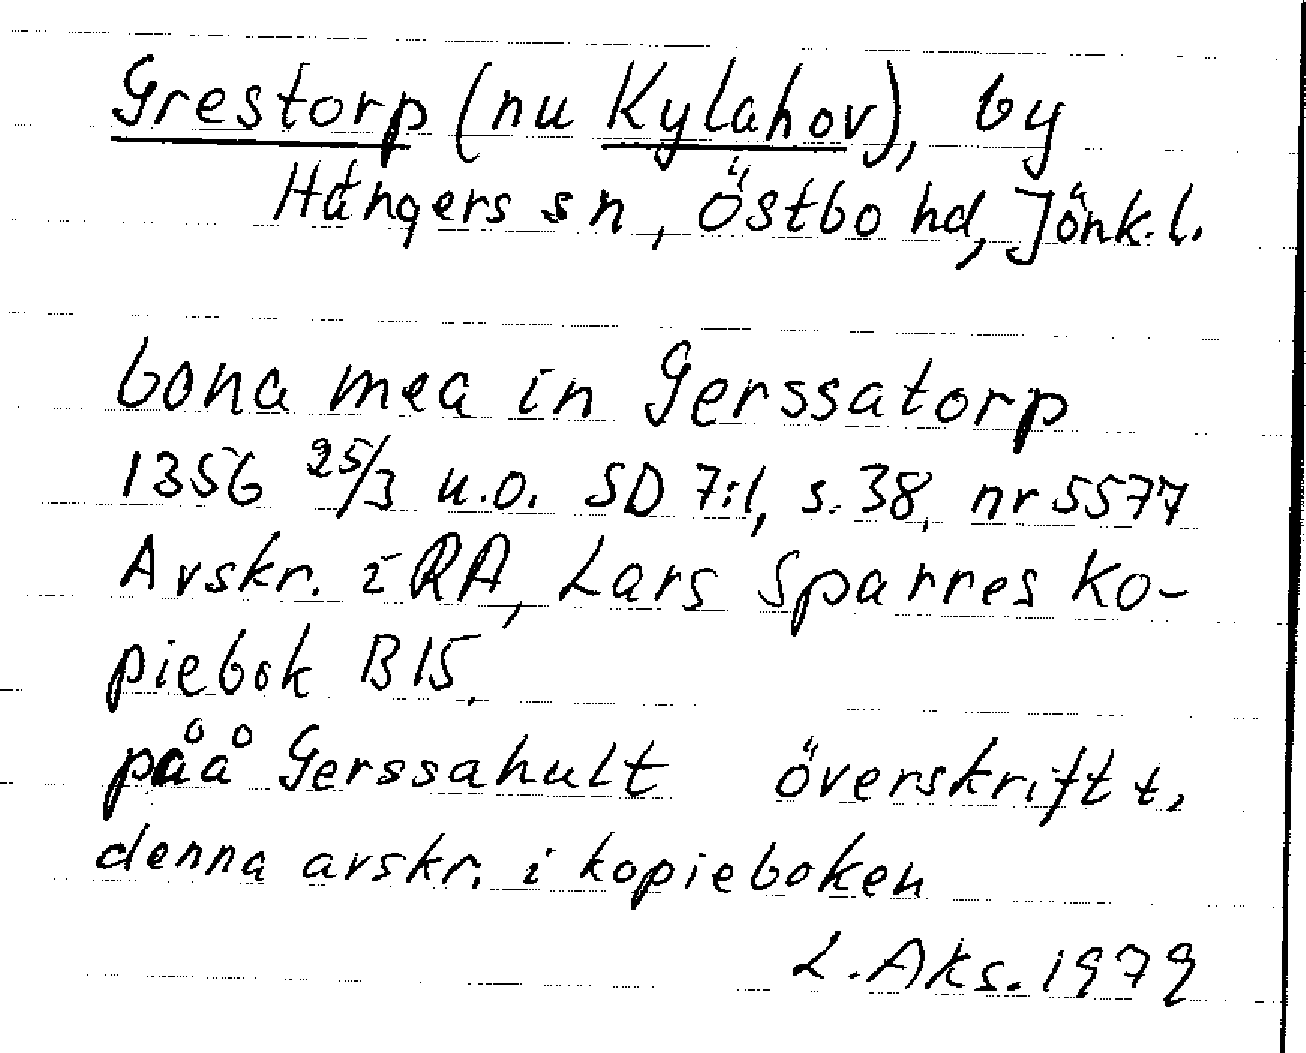 Grestorp (nu Kylahov), by
Hångers sn, Östbo hd, Jönk. l.
bona mea in Gerssatorp
1356 25/3 u.o. SD 7:1, s. 38, nr 5577
Avskr. i RA, Lars Sparres Ko-
piebok B15.
påå Gerssahult överskrift t,
denna avskr. i kopieboken
L. Aks. 1979